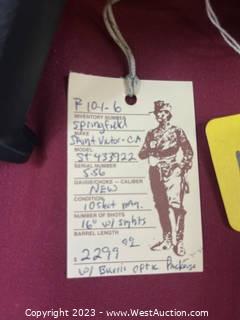 R 101-6
INVENTORY NUMBER
Springfield
MAKE
Saint Victor - CA
MODEL
ST 433922
SERIAL NUMBER
5.56
GAUGE/CHOKE - CALIBER
NEW
CONDITION
10 Shot mag.
NUMBER OF SHOTS
16" w/ sights
BARREL LENGTH
2299 92
w/ Burris optic Package
Copyright 2023 - WestAuction.com